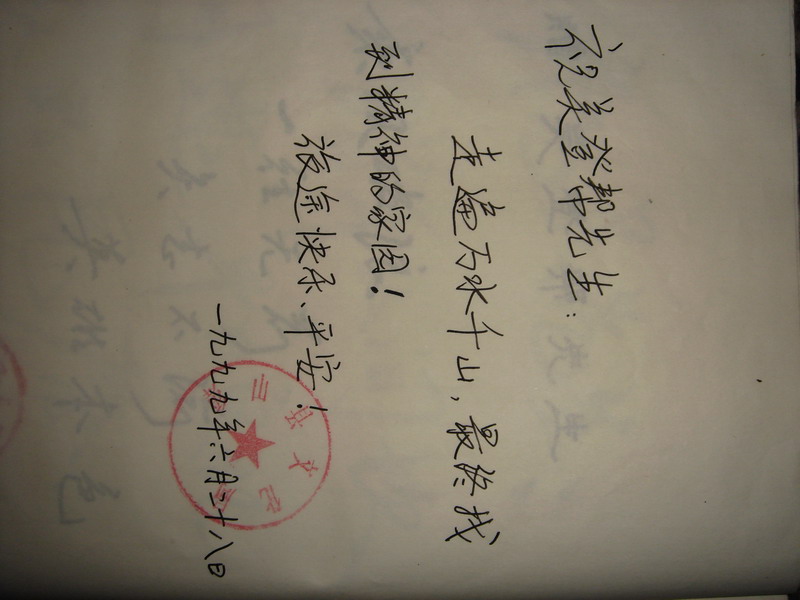 祝美登帮先生：
走遍万水千山，最终找
到精神的家园！
旅途快乐、平安！
一九九九年六月二十八日